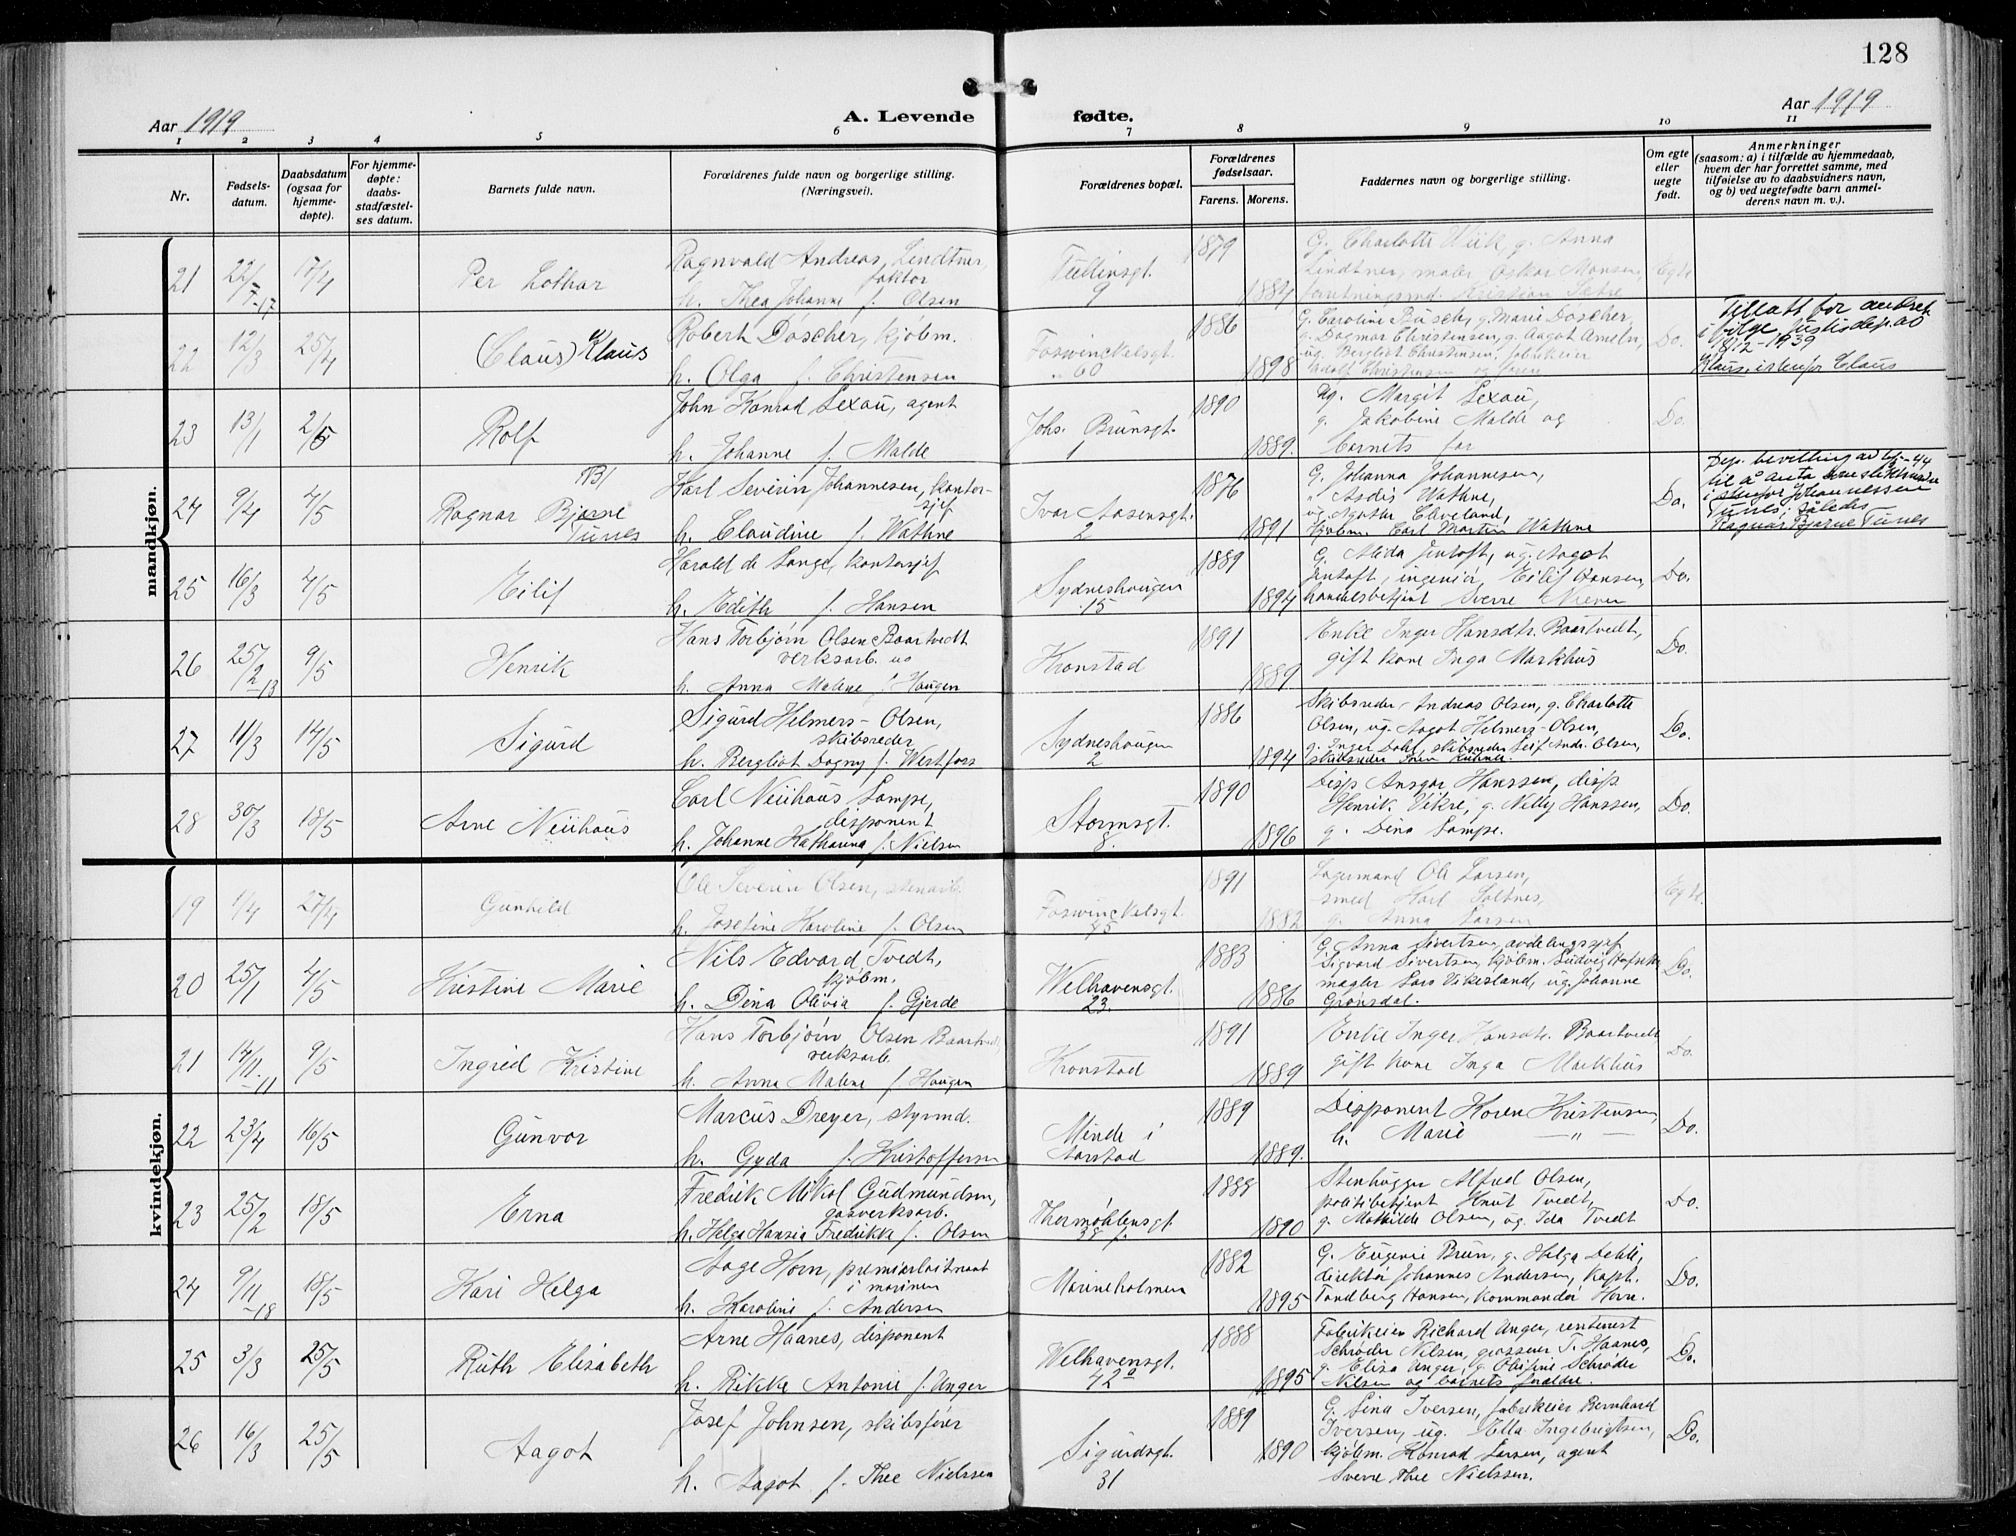 128
Aar 1919
A. Levende fødte.
Aar 1919
1 2 3 4 5 6 7 8 9 10 11
Nr.
Fødselsdatum.
Daabsdatum (ogsaa for hjemmedøpte).
For hjemmedøpte: daabsstadfæstelses datum.
Barnets fulde navn.
Forældrenes fulde navn og borgerlige stilling. (Næringsvei).
Forældrenes bopæl.
Forældrenes fødselsaar.
Farens. Morens.
Faddernes navn og borgerlige stilling.
Om egte eller uegte født.
Anmerkninger
(saasom: a) i tilfælde av hjemmedaab, hvem der har forrettet samme, med tilføielse av to daabsvidners navn, og b) ved uegtefødte barn anmelderens navn m. v.).
mandkjøn.
21 22/7-17 17/4 Per Lothar
Ragnvald Andreas Lindtner, faktor
h. Thea Johanne f. Olsen
Tullinsgt. 9
1879 1884
G. Charlotte Wiik g. Anna
Lindtner, maler Oskar Monsen,
forretningsmd. Kristian Sætre
Egte
22 12/3 25/4 (Claus) Klaus
Robert Döscher, kjøbm.
h. Olga f. Christensen
Foswinckelsgt. 60
1886 1898
G. Caroline Busch, g. Marie Döscher,
g. Dagmar Christensen, g. Aagot Ameln,
ug. Bergliot Christensen, fabrikeier
Adolf Christensen og faren
Do.
Tillatt for andret
i følge Justisdep. av
18/12-1939
Klaus istenfor Claus
23 13/1 2/5 Rolf
John Konrad Lexau, agent
h. Johanne f. Malde
Johs. Brunsgt. 1
1890 1889.
Ug. Margit Lexau,
g. Jakobine Malde og
barnets far
Do.
24 9/4 4/5 Ragnar Bjarne Tunes
Karl Severin Johannesen, kontorsjef
h. Claudine f. Wathne
Ivar Aasensgt. 2
1876 1891
G. Johanna Johannesen,
" Asdis Wathne,
ug. Agathe Cleveland,
Kjøbm. Carl Martin Wathne
Do.
Dep. bevilling av
til å anta
i stenfor Johannessen
Tunes, således
Ragnar Bjarne Tunes
25 16/3 4/5 Eilif
Harald de Lange, kontorsjef
h. Edith f. Hansen
Sydneshougen 15
1889 1894
G. Alida Jentoft, ug. Aagot
Jentoft, ingeniør Eilif Hansen,
handelsbetjent Sverre Mæver
Do.
26 25/2-13 9/5 Henrik
Hans Torbjørn Olsen Baartvedt
verksarb.
h. Anna Malene f. Haugen
Kronstad
1891 1889
Enke Inger Hansdtr. Baartvedt,
gift kone Inga Markhus
Do.
27 11/3 14/5 Sigurd
Sigurd Helmers-Olsen,
skibsreder
h. Bergliot Dagny f. Westfoss
Sydneshougen 2
1886 1894
Skibsreder Andreas Olsen, g. Charlotte
Olsen, ug. Aagot Helmers-Olsen,
g. Inger Dahl, skibsreder Leif Andr. Olsen,
skibsreder
Do.
28 30/3 18/5 Arne Neühaüs
Carl Neühaüs Lampe,
disponent
h. Johanne Katharina f. Nielsen
Stormsgt. 8.
1890 1896
Disp. Ansgar Hanssen, disp.
Henrik Vikre, g. Nelly Hanssen,
g. Dina Lampe.
Do.
kvindekjøn.
19 1/4 27/4 Gunhild
Ole Severin Olsen, stenarb.
h. Josefine Karoline f. Olsen
Foswinckelsgt. 45
1891 1882
Lagermand Ole Larsen,
smed Karl Soltnes,
g. Anna Larsen
Egte.
20 25/1 4/5 Kristine Marie
Nils Edvard Tvedt,
kjøbm.
h. Dina Olivia f. Gjerde
Welhavensgt. 23.
1883 1886
G. Anna Sivertsen, avdelingssjef
Sigvard Sivertsen, kjøbm. Ludvig
mægler Lars Vikesland, ug. Johanne
Grønsdal.
Do.
21 14/11-11 9/5 Ingrid Kristine
Hans Torbjørn Olsen Baartvedt
verksarb.
h. Anna Malene f. Haugen
Kronstad
1891 1889
Enke Inger Hansdtr. Baartvedt
gift kone Inga Markhus
Do.
22 23/4 16/5 Gunvor
Marcus Dreyer, styrmd.
h. Gyda f. Kristoffersen
Minde i Aarstad
1889 1889.
Disponent Koren Kristensen,
h. Marie — " —
Do.
23 25/2 18/5 Erna
Fredrik Mikal Gudmundsen,
gasverksarb.
h. Helga Hansia Fredrikke f. Olsen
Thormøhlensgt. 38
1888 1890
Stenhugger Alfred Olsen,
politibetjent Knut Tvedt,
g. Mathilde Olsen, ug. Ida Tvedt
Do.
24 9/11-18 18/5 Kari Helga
Aage Horn, premierløitnant
i marinen
h. Karoline f. Andersen
Marineholmen
1882 1895
G. Eugenie Brun, g. Helga Dekke,
direktør Johannes Andersen, Kapt.
Tandberg Hansen, Kommandør Horn.
Do.
25 3/3 25/5 Ruth Elisabeth
Arne Haanes, disponent
h. Rikke Antonie f. Unger
Welhavensgt. 42 a
1888 1895
Fabrikeier Richard Unger, rentenist
Schrøder Nilsen, grosserer T. Haanes,
g. Elisa Unger, g. Olefine Schrøder
Nilsen og barnets foreldre.
Do.
26 16/3 25/5 Aagot
Josef Johnsen, skibsfører
h. Aagot f. Thee Nielssen
Sigurdsgt. 31
1889 1890
G. Lina Iversen, fabrikeier Bernhard
Iversen, ug. Ella Ingebrigtsen,
kjøbm. Konrad Larsen, agent
Sverre Thee Nielssen.
Do.